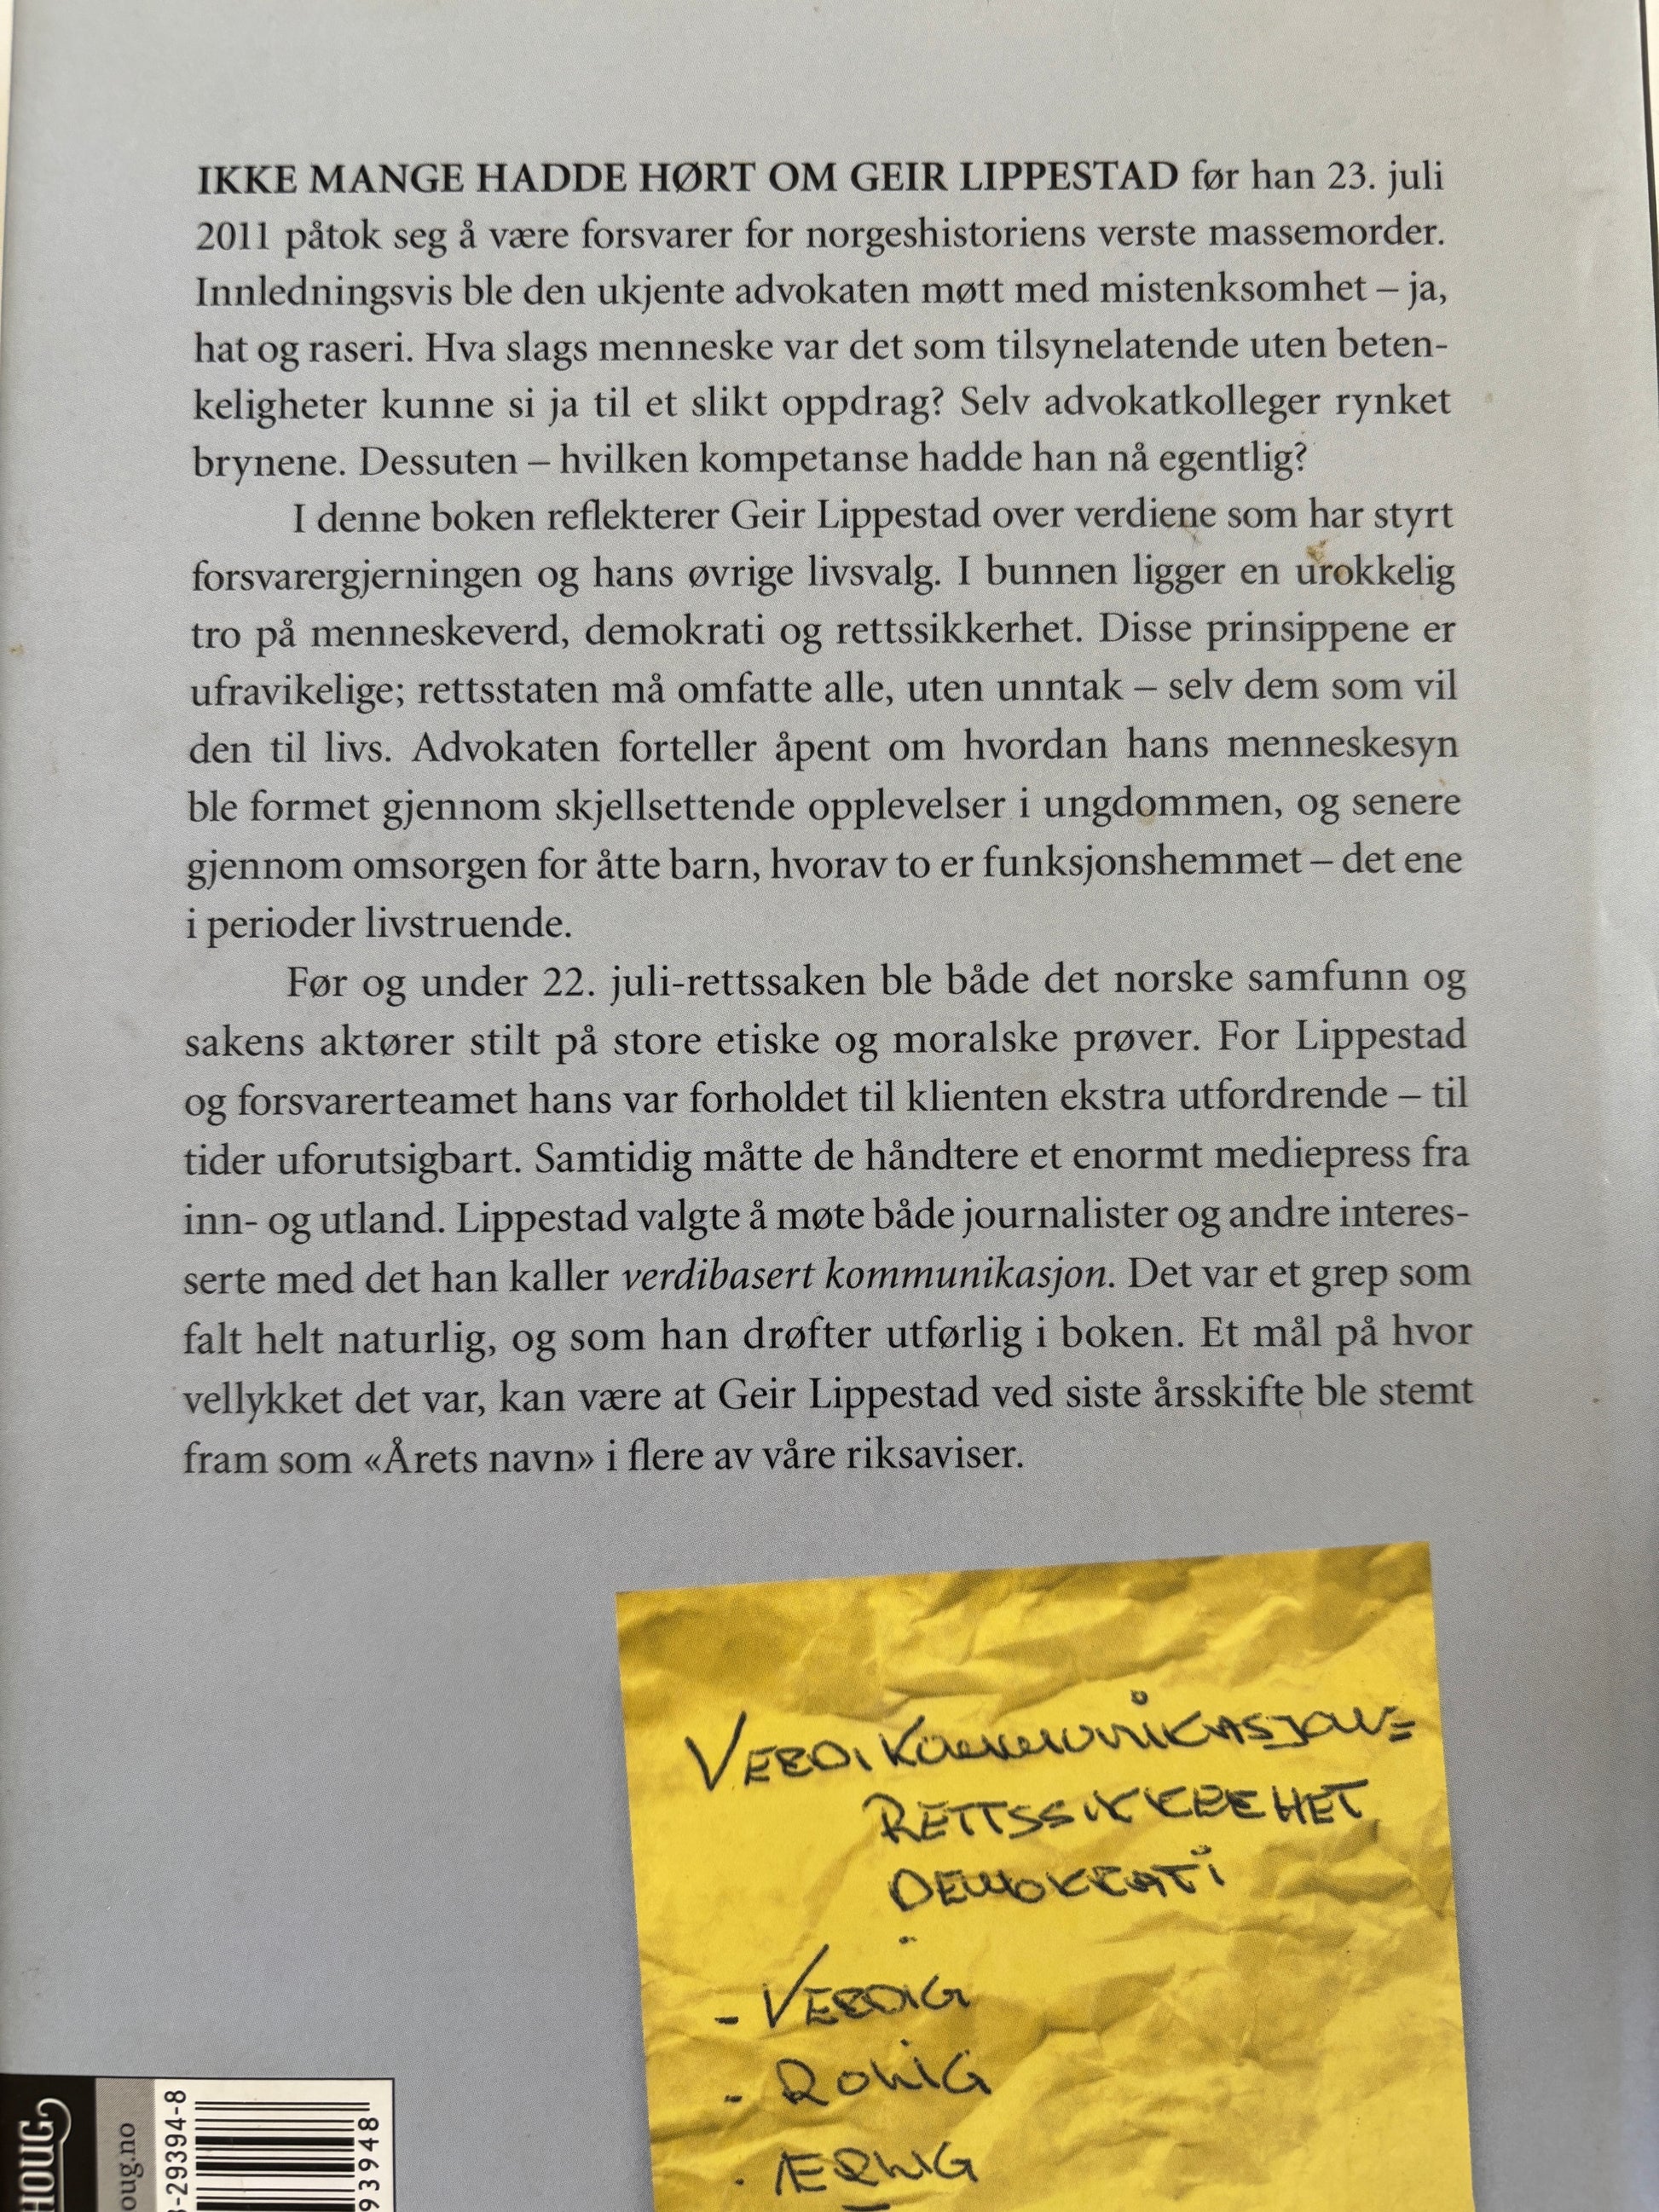 IKKE MANGE HADDE HØRT OM GEIR LIPPESTAD før han 23. juli
2011 påtok seg å være forsvarer for norgeshistoriens verste massemorder.
Innledningsvis ble den ukjente advokaten møtt med mistenksomhet – ja,
hat og raseri. Hva slags menneske var det som tilsynelatende uten beten-
keligheter kunne si ja til et slikt oppdrag? Selv advokatkolleger rynket
brynene. Dessuten – hvilken kompetanse hadde han nå egentlig?
I denne boken reflekterer Geir Lippestad over verdiene som har styrt
forsvarergjerningen og hans øvrige livsvalg. I bunnen ligger en urokkelig
tro på menneskeverd, demokrati og rettssikkerhet. Disse prinsippene er
ufravikelige; rettsstaten må omfatte alle, uten unntak – selv dem som vil
den til livs. Advokaten forteller åpent om hvordan hans menneskesyn
ble formet gjennom skjellsettende opplevelser i ungdommen, og senere
gjennom omsorgen for åtte barn, hvorav to er funksjonshemmet – det ene
i perioder livstruende.
Før og under 22. juli-rettssaken ble både det norske samfunn og
sakens aktører stilt på store etiske og moralske prøver. For Lippestad
og forsvarerteamet hans var forholdet til klienten ekstra utfordrende – til
tider uforutsigbart. Samtidig måtte de håndtere et enormt mediepress fra
inn- og utland. Lippestad valgte å møte både journalister og andre interes-
serte med det han kaller verdibasert kommunikasjon. Det var et grep som
falt helt naturlig, og som han drøfter utførlig i boken. Et mål på hvor
vellykket det var, kan være at Geir Lippestad ved siste årsskifte ble stemt
fram som «Årets navn» i flere av våre riksaviser.
VERDIKOMMUNIKASJON=
RETTSSIKKERHET
DEMOKRATI
- VERDIG
- ROLIG
- ÆRLIG
HOUG
oug.no
-29394-8
93948